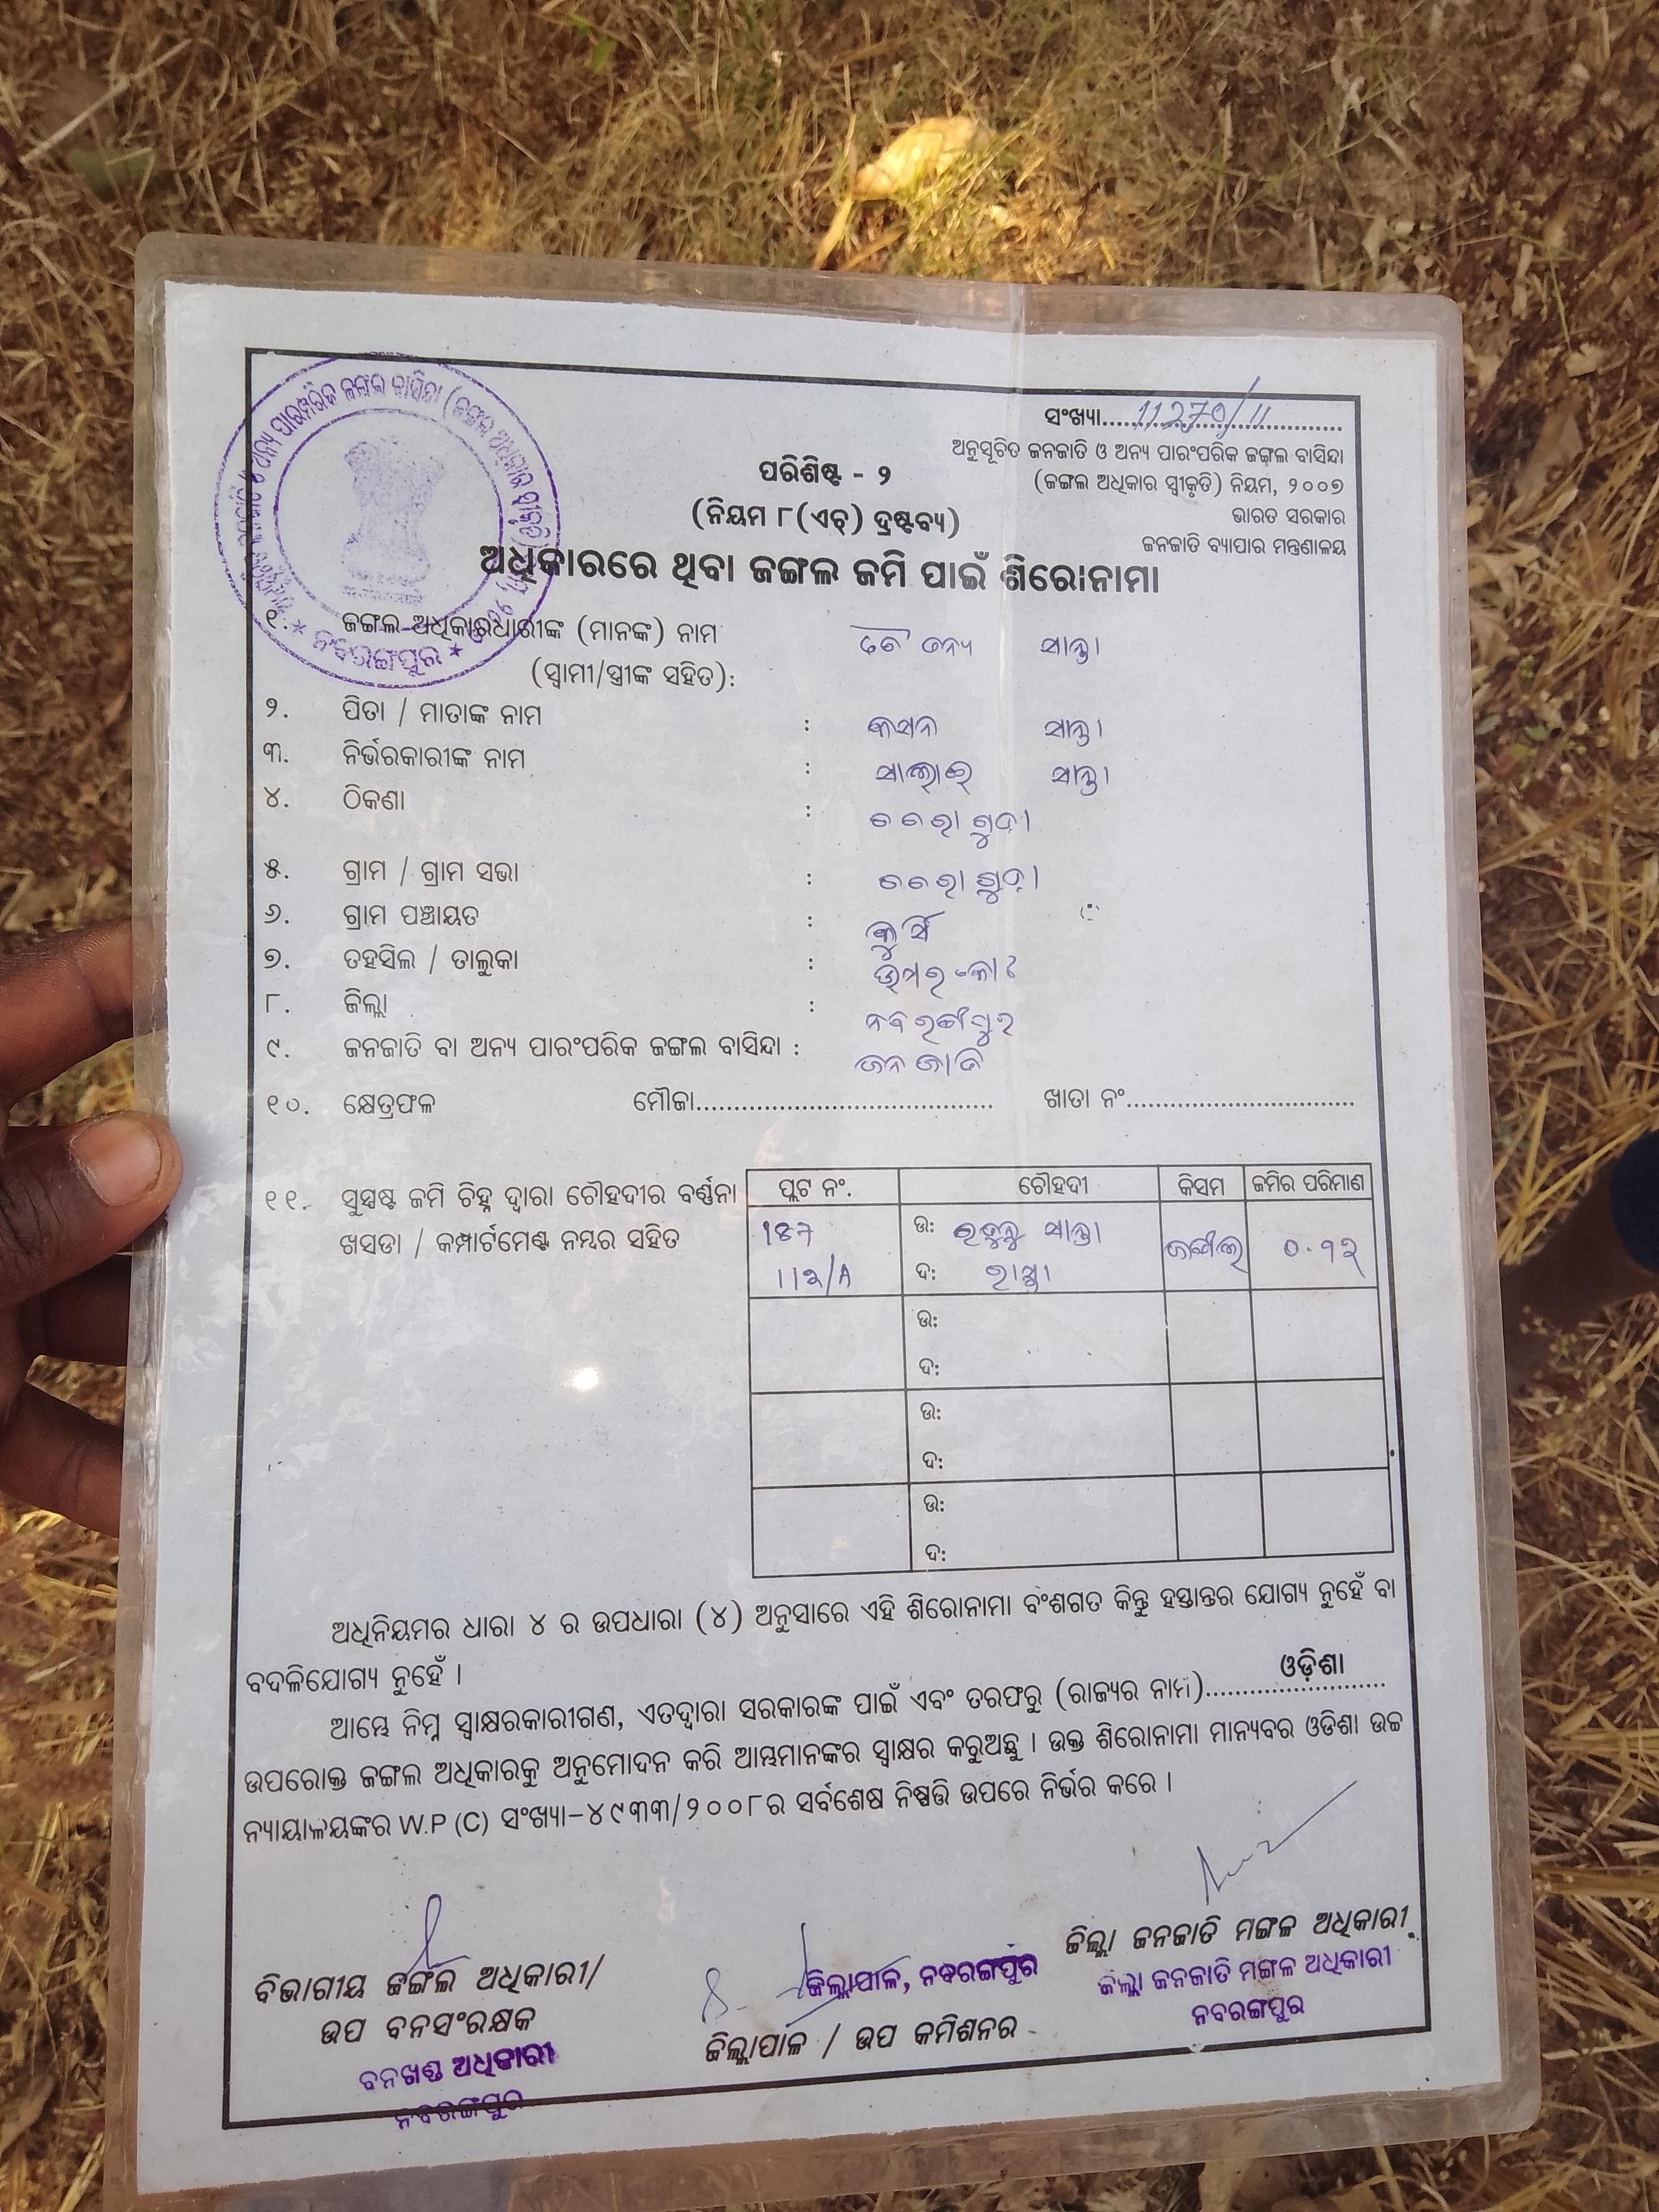 ସଂଖ୍ୟା......11270/11......
ଅନୁସୂଚିତ ଜନଜାତି ଓ ଅନ୍ୟ ପାରଂପରିକ ଜଙ୍ଗଲ ବାସିନ୍ଦା
(ଜଙ୍ଗଲ ଅଧିକାର ସ୍ୱୀକୃତି) ନିୟମ, ୨୦୦୭
ଭାରତ ସରକାର
ଜନଜାତି ବ୍ୟାପାର ମନ୍ତ୍ରଣାଳୟ
ପରିଶିଷ୍ଟ - ୨
(ନିୟମ ୮(ଏଚ୍) ଦ୍ରଷ୍ଟବ୍ୟ)
ଅଧିକାରରେ ଥିବା ଜଙ୍ଗଲ ଜମି ପାଇଁ ଶିରୋନାମା
ନବରଙ୍ଗପୁର
୧. ଜଙ୍ଗଲ ଅଧିକାରଧାରୀଙ୍କ (ମାନଙ୍କ) ନାମ ସାନ୍ତା
(ସ୍ୱାମୀ/ସ୍ତ୍ରୀଙ୍କ ସହିତ):
୨. ପିତା / ମାତାଙ୍କ ନାମ : ସାନ୍ତା
୩. ନିର୍ଭରକାରୀଙ୍କ ନାମ : ସାନ୍ତା
୪. ଠିକଣା :
୫. ଗ୍ରାମ / ଗ୍ରାମ ସଭା :
୬. ଗ୍ରାମ ପଞ୍ଚାୟତ : କୁର୍ସି
୭. ତହସିଲ / ତାଲୁକା : ଉମରକୋଟ
୮. ଜିଲ୍ଲା : ନବରଙ୍ଗପୁର
୯. ଜନଜାତି ବା ଅନ୍ୟ ପାରଂପରିକ ଜଙ୍ଗଲ ବାସିନ୍ଦା : ଜନଜାତି
୧୦. କ୍ଷେତ୍ରଫଳ ମୌଜା...................................... ଖାତା ନଂ..............................
୧୧. ସୁସ୍ପଷ୍ଟ ଜମି ଚିହ୍ନ ଦ୍ୱାରା ଚୌହଦୀର ବର୍ଣ୍ଣନା
ଖସଡା / କମ୍ପାର୍ଟମେଣ୍ଟ ନମ୍ବର ସହିତ
ପ୍ଲଟ ନଂ. ଚୌହଦୀ କିସମ ଜମିର ପରିମାଣ
187 ଉ: ସାନ୍ତା ଜଙ୍ଗଲ ୦.୧୨
112/A ଦ: ରାସ୍ତା
ଉ:
ଦ:
ଉ:
ଦ:
ଉ:
ଦ:
ଅଧିନିୟମର ଧାରା ୪ ର ଉପଧାରା (୪) ଅନୁସାରେ ଏହି ଶିରୋନାମା ବଂଶଗତ କିନ୍ତୁ ହସ୍ତାନ୍ତର ଯୋଗ୍ୟ ନୁହେଁ ବା
ବଦଳିଯୋଗ୍ୟ ନୁହେଁ ।
ଆମ୍ଭେ ନିମ୍ନ ସ୍ୱାକ୍ଷରକାରୀଗଣ, ଏତଦ୍ୱାରା ସରକାରଙ୍କ ପାଇଁ ଏବଂ ତରଫରୁ (ରାଜ୍ୟର ନାମ)..........ଓଡ଼ିଶା..........
ଉପରୋକ୍ତ ଜଙ୍ଗଲ ଅଧିକାରକୁ ଅନୁମୋଦନ କରି ଆମ୍ଭମାନଙ୍କର ସ୍ୱାକ୍ଷର କରୁଅଛୁ । ଉକ୍ତ ଶିରୋନାମା ମାନ୍ୟବର ଓଡିଶା ଉଚ୍ଚ
ନ୍ୟାୟାଳୟଙ୍କର W.P (C) ସଂଖ୍ୟା-୪୯୩୩/୨୦୦୮ର ସର୍ବଶେଷ ନିଷ୍ପତ୍ତି ଉପରେ ନିର୍ଭର କରେ ।
ବିଭାଗୀୟ ଜଙ୍ଗଲ ଅଧିକାରୀ/
ଉପ ବନସଂରକ୍ଷକ
ବନଖଣ୍ଡ ଅଧିକାରୀ
ନବରଙ୍ଗପୁର
ଜିଲ୍ଲାପାଳ, ନବରଙ୍ଗପୁର
ଜିଲ୍ଲାପାଳ / ଉପ କମିଶନର
ଜିଲ୍ଲା ଜନଜାତି ମଙ୍ଗଳ ଅଧିକାରୀ
ଜିଲ୍ଲା ଜନଜାତି ମଙ୍ଗଳ ଅଧିକାରୀ
ନବରଙ୍ଗପୁର